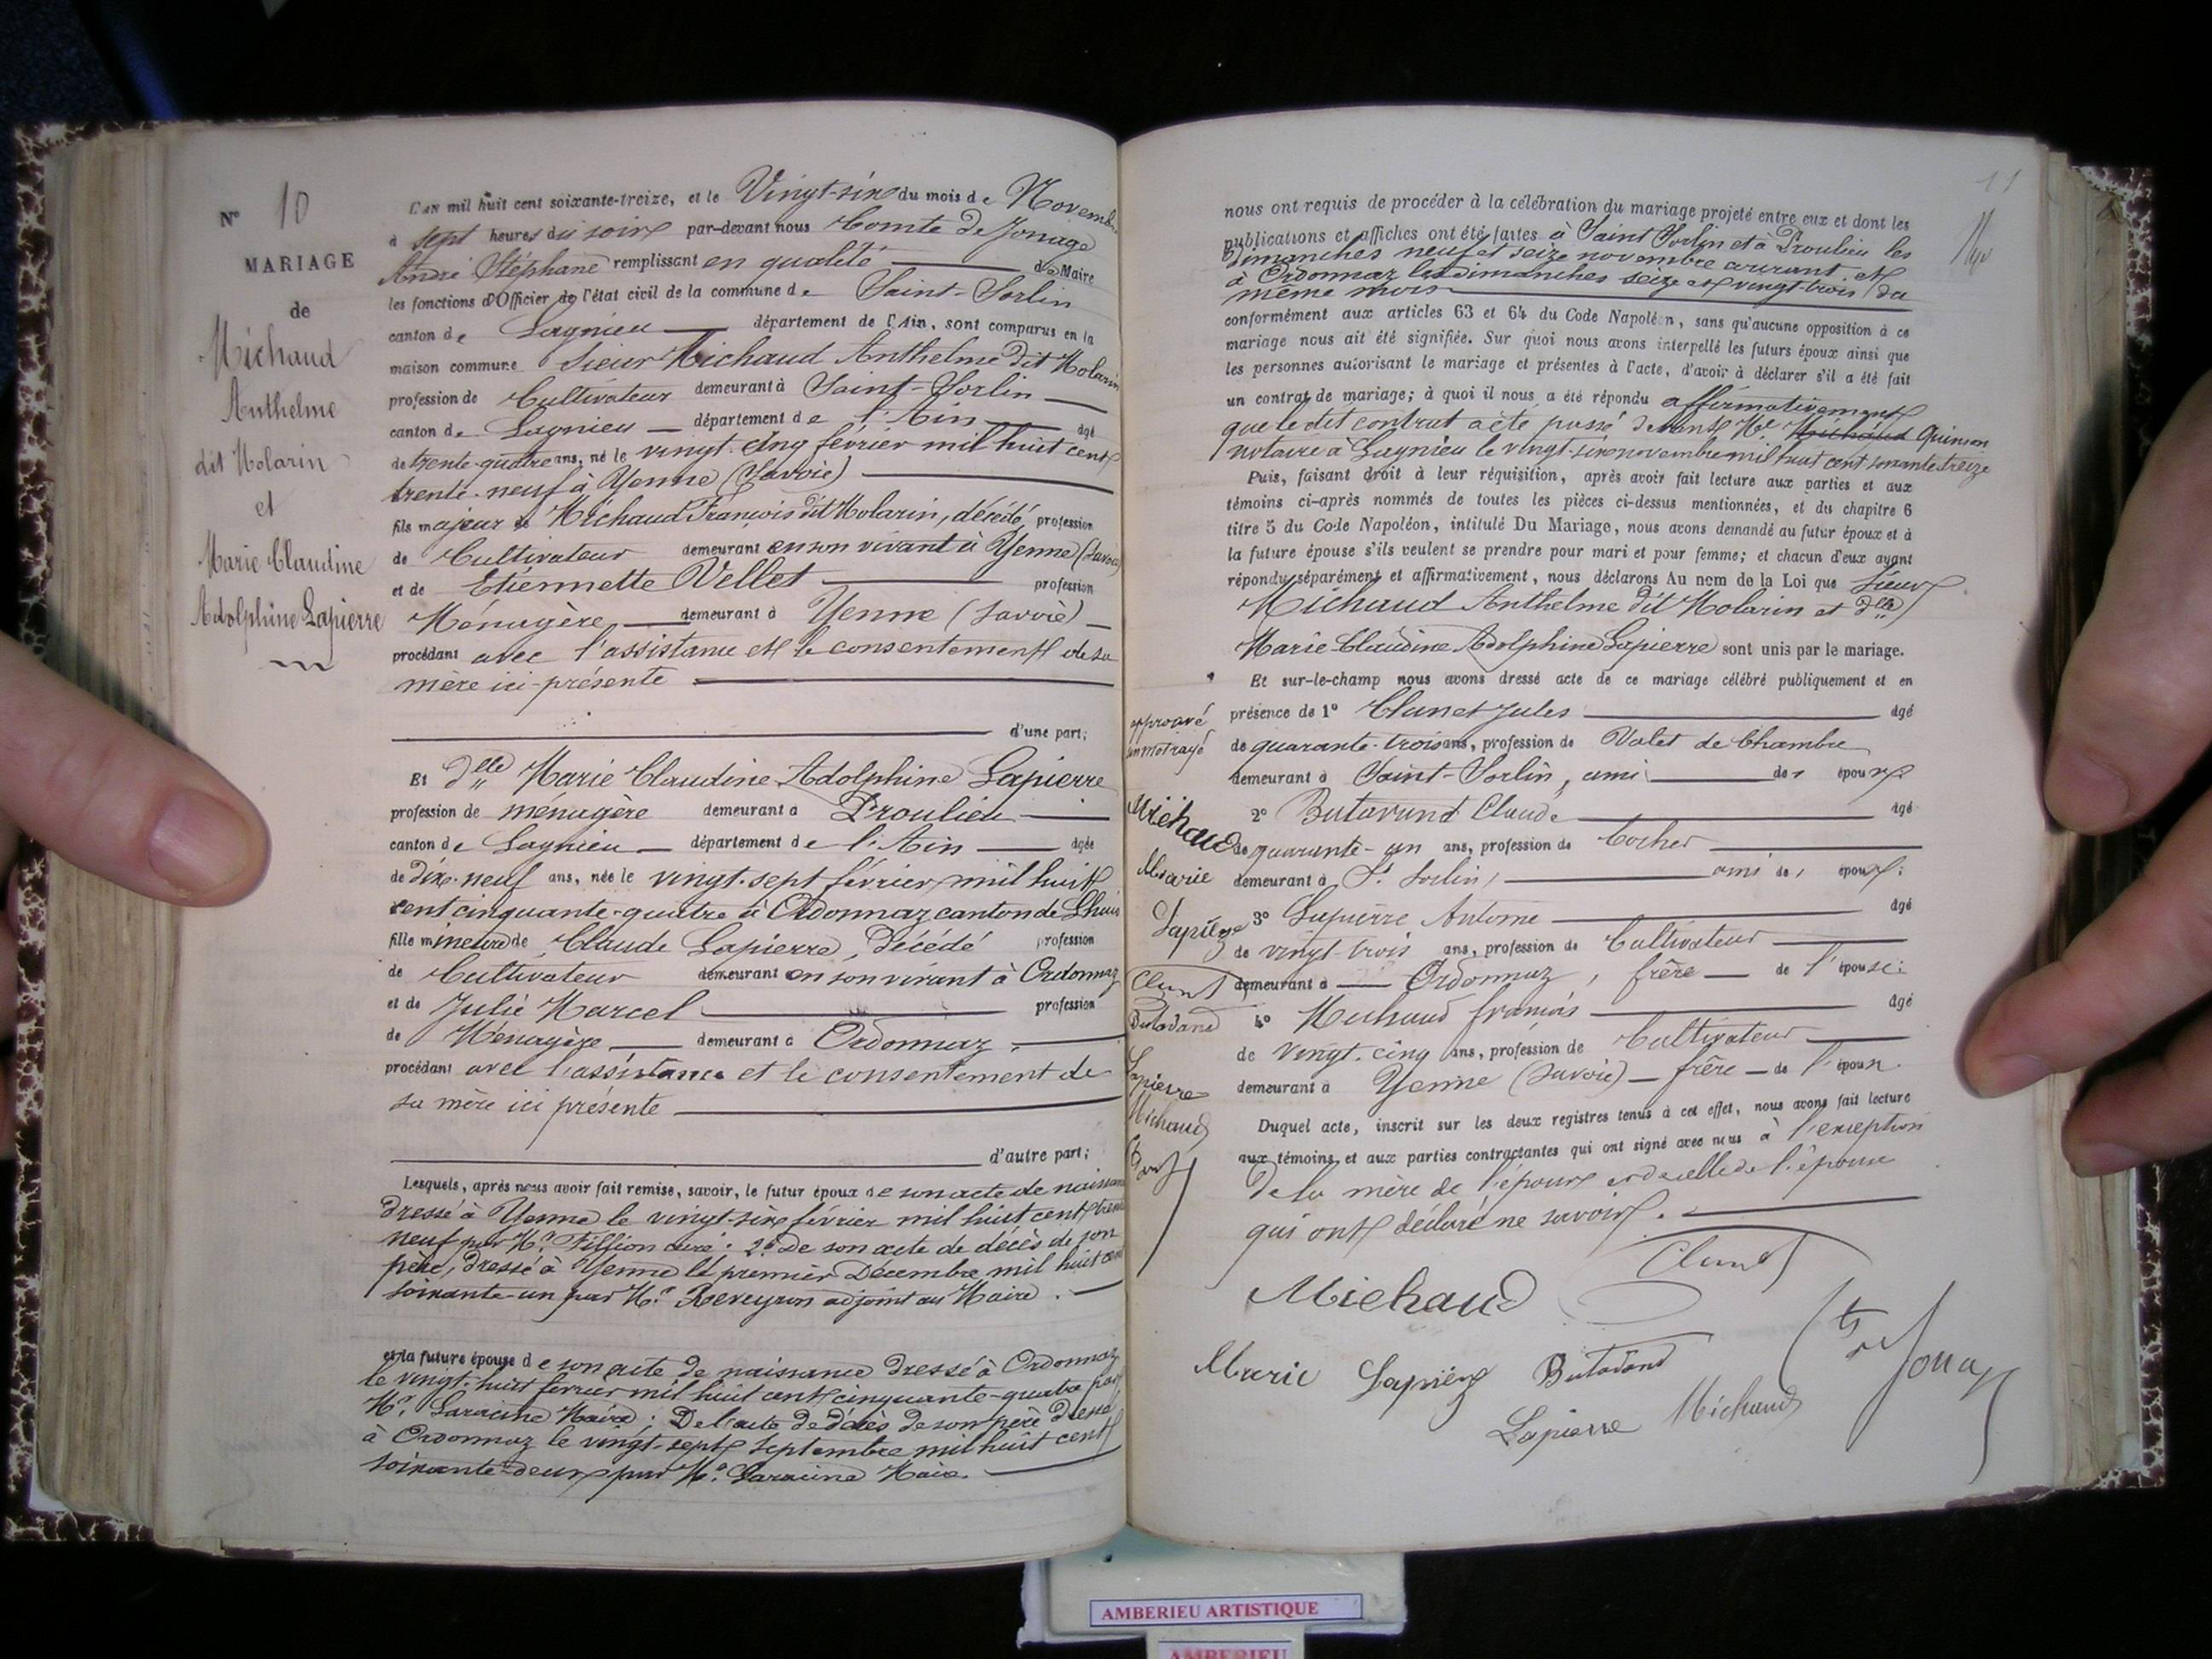 N° 10
MARIAGE
de
Michaud
Anthelme
dit Molarin
et
Marie Claudine
Adolphine Lapierre
L'an mil huit cent soixante-treize, et le Vingt-six du mois de Novembre
à sept heures du soir par-devant nous Comte de Jonage
André Stéphane remplissant en qualité de Maire
les fonctions d'Officier de l'état civil de la commune de Saint-Sorlin
canton de Lagnieu département de l'Ain, sont comparus en la
maison commune Sieur Michaud Anthelme dit Molarin
profession de Cultivateur demeurant à Saint-Sorlin
canton de Lagnieu département de l'Ain âgé
de trente-quatre ans, né le vingt-cinq février mil huit cent
trente-neuf à Yenne (Savoie)
fils majeur de Michaud François dit Molarin, décédé, profession
de Cultivateur demeurant en son vivant à Yenne (Savoie)
et de Etiennette Vellet profession
Ménagère demeurant à Yenne (Savoie)
procédant avec l'assistance et le consentement de sa
mère ici présente
d'une part;
Et Dlle Marie Claudine Adolphine Lapierre
profession de ménagère demeurant à Proulieu
canton de Lagnieu département de l'Ain âgée
de dix-neuf ans, née le vingt-sept février mil huit
cent cinquante-quatre à Ordonnaz canton de Lhuis
fille mineure de Claude Lapierre, décédé profession
de Cultivateur demeurant en son vivant à Ordonnaz
et de Julie Marcel profession
de Ménagère demeurant à Ordonnaz
procédant avec l'assistance et le consentement de
sa mère ici présente
d'autre part;
Lesquels, après nous avoir fait remise, savoir, le futur époux de son acte de naissance
dressé à Yenne le vingt-six février mil huit cent trente
neuf par Mr. Fillion curé : 2° De son acte de décès de son
père, dressé à Yenne le premier Décembre mil huit cent
soixante-un par Mr. Reveyron adjoint au Maire.
et la future épouse de son acte de naissance dressé à Ordonnaz
le vingt-huit fevrier mil huit cent cinquante-quatre par
Mr. Laracine Maire : De l'acte de décès de son père dressé
à Ordonnaz le vingt-sept Septembre mil huit cent
soixante-deux par Mr. Laracine Maire.
11
nous ont requis de procéder à la célébration du mariage projeté entre eux et dont les
publications et affiches ont été faites à Saint Sorlin et à Proulieu les
Dimanches neuf et seize novembre courant et
à Ordonnaz les dimanches seize et vingt-trois du
même mois
conformément aux articles 63 et 64 du Code Napoléon, sans qu'aucune opposition à ce
mariage nous ait été signifiée. Sur quoi nous avons interpellé les futurs époux ainsi que
les personnes autorisant le mariage et présentes à l'acte, d'avoir à déclarer s'il a été fait
un contrat de mariage; à quoi il nous a été répondu affirmativement
que le dit contrat a été passé devant Me Michaud Quinson
notaire à Lagnieu le vingt-six novembre mil huit cent soixante treize
Puis, faisant droit à leur réquisition, après avoir fait lecture aux parties et aux
témoins ci-après nommés de toutes les pièces ci-dessus mentionnées, et du chapitre 6
titre 5 du Code Napoléon, intitulé Du Mariage, nous avons demandé au futur époux et à
la future épouse s'ils veulent se prendre pour mari et pour femme; et chacun d'eux ayant
répondu séparément et affirmativement, nous déclarons Au nom de la Loi que Sieur
Michaud Anthelme dit Molarin et Dlle
Marie Claudine Adolphine Lapierre sont unis par le mariage.
Et sur-le-champ nous avons dressé acte de ce mariage célébré publiquement et en
présence de 1° Clunet Jules âgé
de quarante-trois ans, profession de Valet de Chambre
demeurant à Saint-Sorlin, ami de l'époux
2° Butavand Claude âgé
de quarante-un ans, profession de Cocher
demeurant à St. Sorlin, ami de l'époux;
3° Lapierre Antoine âgé
de vingt-trois ans, profession de Cultivateur
demeurant à Ordonnaz, frère de l'épouse;
4° Michaud françois âgé
de vingt-cinq ans, profession de Cultivateur
demeurant à Yenne (Savoie) frère de l'époux.
Duquel acte, inscrit sur les deux registres tenus à cet effet, nous avons fait lecture
aux témoins et aux parties contractantes qui ont signé avec nous à l'exception
de la mère de l'époux et de celle de l'épouse
qui ont déclaré ne savoir.
approuvé
un mot rayé
Michaud
Marie
Lapierre
Clunet
Butavand
Lapierre
Michaud
Clunet
Michaud
Marie Lapierre Butavand
Cte de Jonage
Lapierre Michaud
AMBERIEU ARTISTIQUE
AMBERIEU